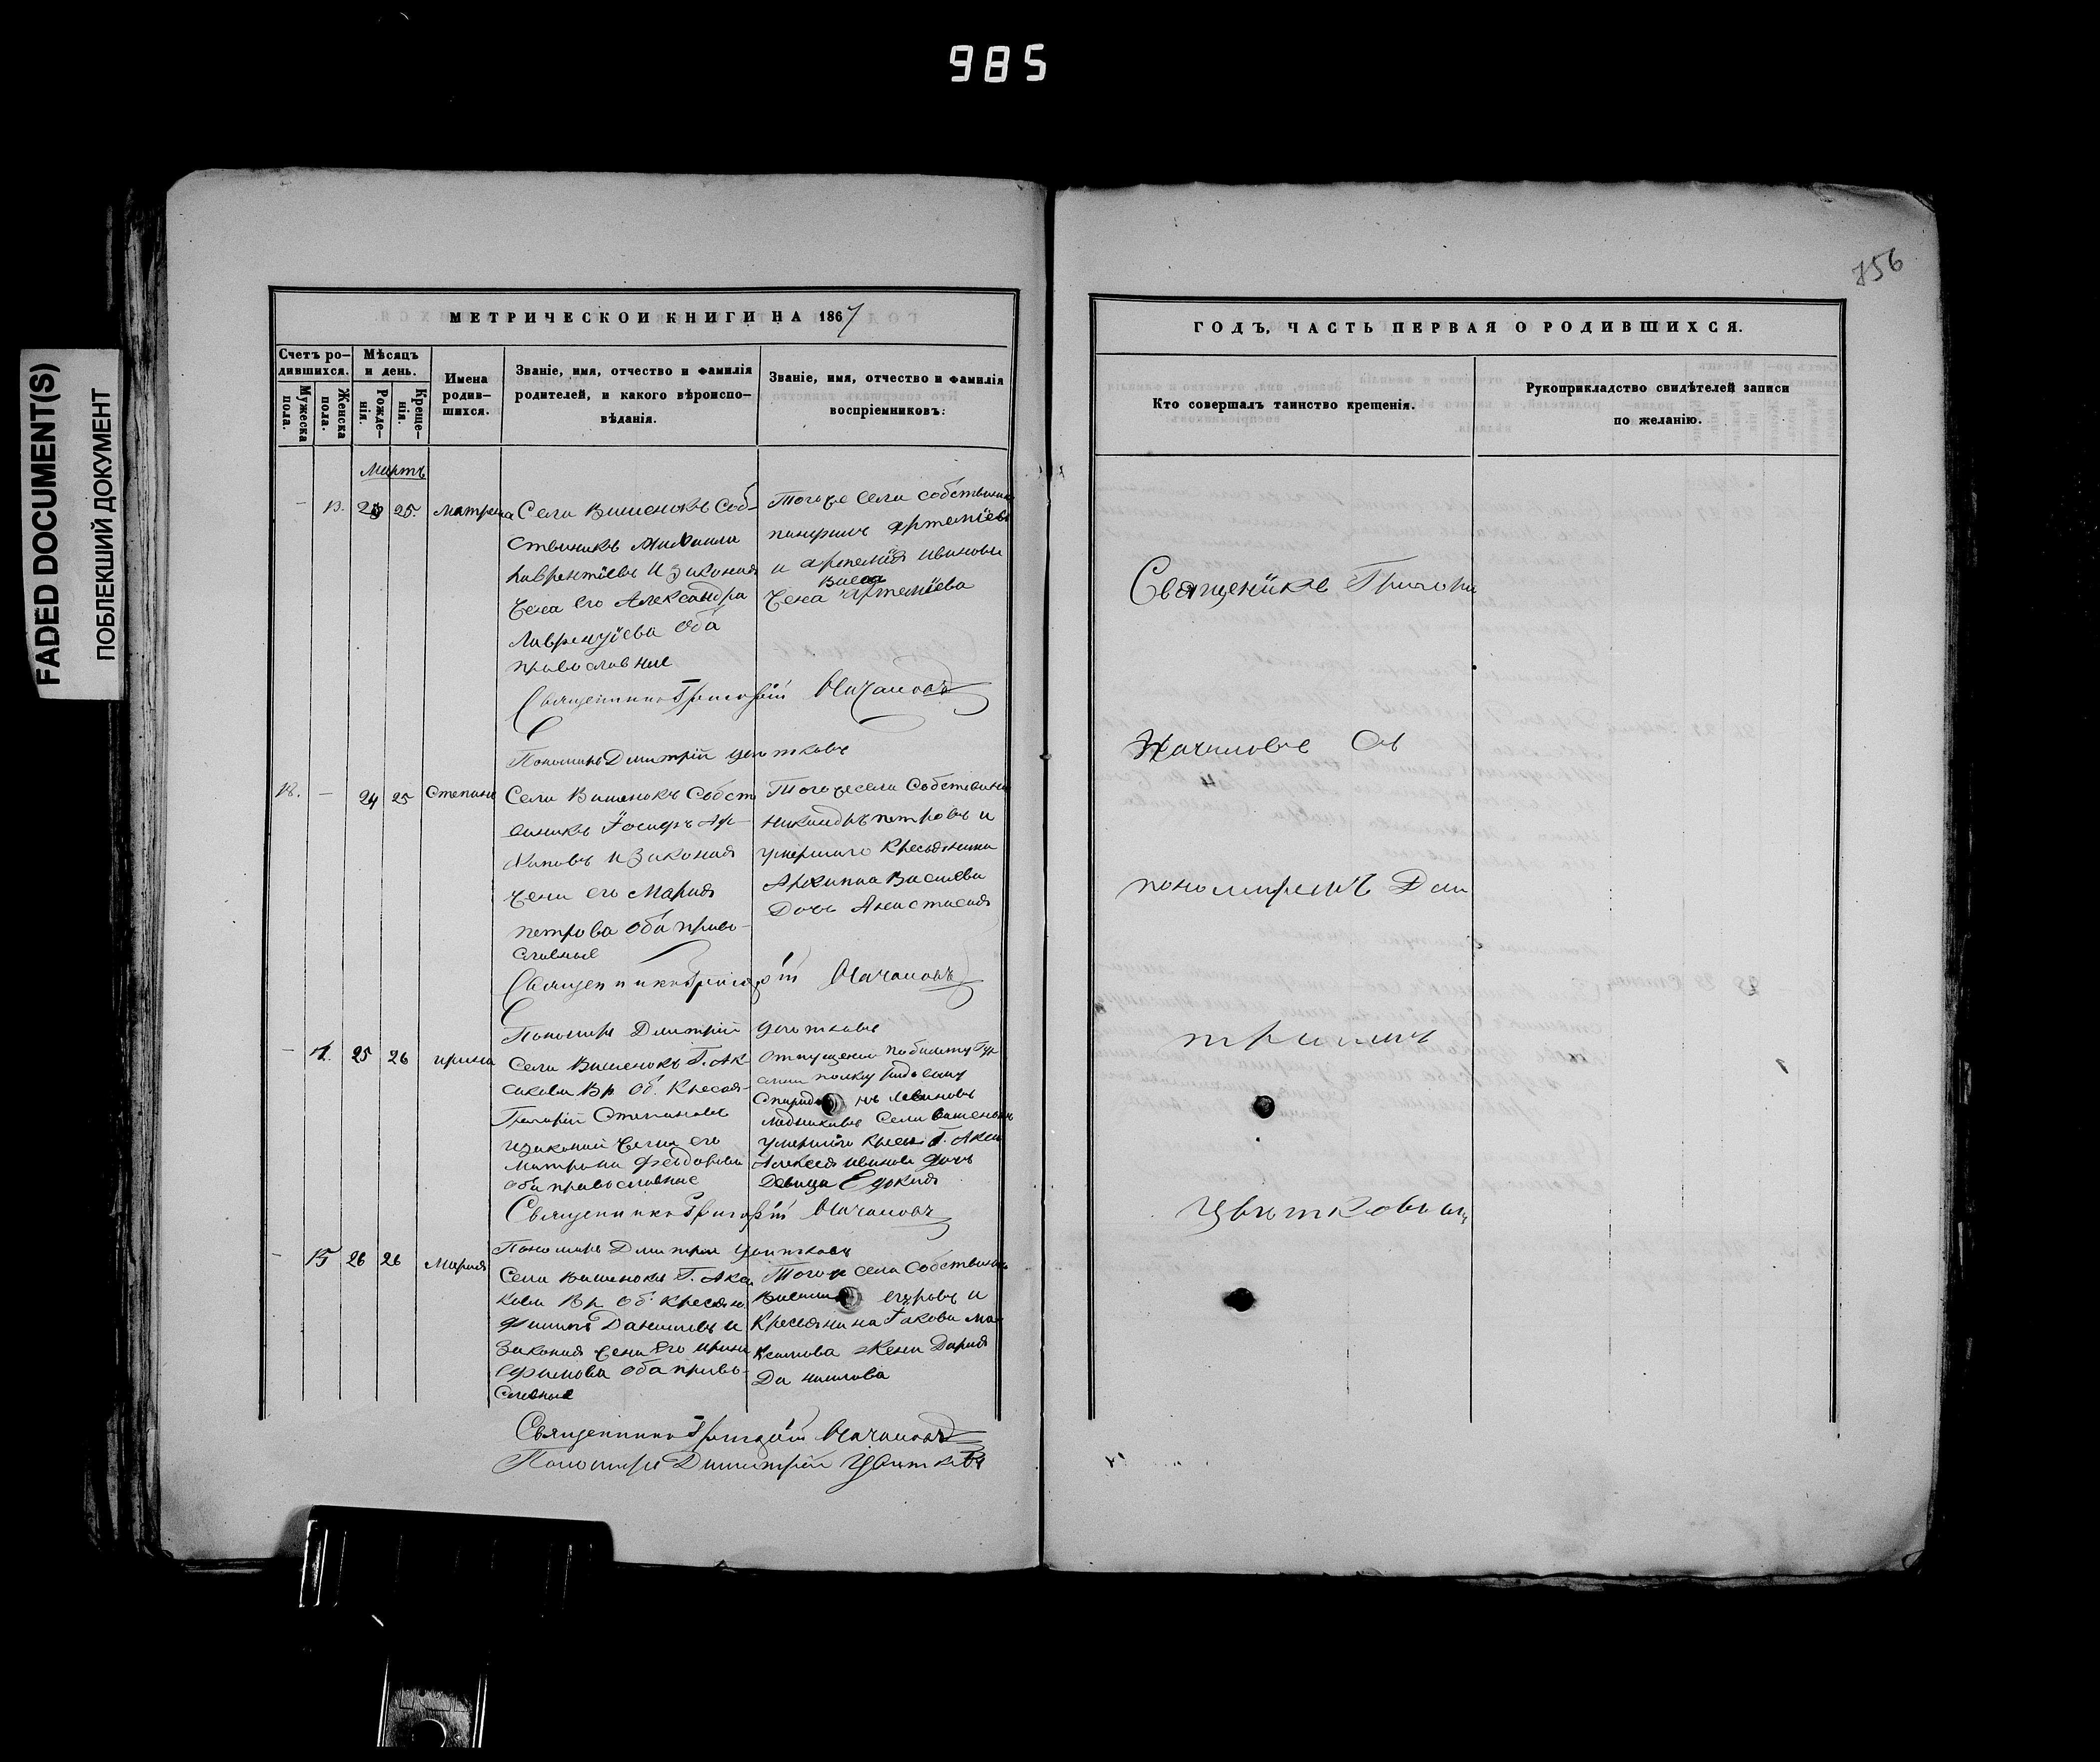 985
FADED DOCUMENT(S)
ПОБЛЕКШИЙ ДОКУМЕНТ
756
МЕТРИЧЕСКОЙ КНИГИ НА 1867
Счетъ ро-
дившихся.
Мужеска
пола.
Женска
пола.
Мѣсяцъ
и день.
Рожде-
нія.
Креще-
нія.
Имена
родив-
шихся.
Званіе, имя, отчество и фамилія
родителей, и какого вѣроиспо-
вѣданія.
Званіе, имя, отчество и фамилія
воспріемниковъ:
Мартъ
- 13. 23 25. Матрена
Села Вишенокъ Соб-
ственикъ Михаила
Лаврентіевъ и законая
жена его Александра
Лаврентіева оба
православные
Тогоже села собственик
артеміевъ
и иванова
жена Артеміева
Священникъ Григорій Началовъ
Пономарь Димитрій Цвѣтковъ
18. - 24 25 Степанъ
Села Вишенокъ Собст
веникъ Іосифъ Ар-
хиповъ и законая
жена его Мария
петрова оба право-
славные
Тогоже села Собственик
Никандръ петровъ и
умершаго Кресьянина
Архиппа Васильева
Дочь Анастасия
Священникъ Григорій Началовъ
Пономарь Димитрій Цвѣтковъ
- 14. 25 26 ирина
Села Вишенокъ Г. Ак-
сакова Вр. Об. Кресья-
Григорій Степановъ
изаконай жена его
Матрона Феодорова
оба православные
Отпущеной побилету
полку рядовой
Села Вишенокъ
умершаго Кресь Г. Акса
Алексея иванова дочь
Девица Едокия
Священникъ Григорій Началовъ
Пономарь Димитрій Цвѣтковъ
- 15 26 26 Мария
Села Вишенокъ Г. Акса
кова Вр. Об. Кресьян.
Филипъ Даниловъ и
Законая жена его ирина
Ефимова оба право-
славные
Тогоже села Собственик
Василий егоровъ и
Кресьянина Іакова Ма-
ксимова жена Дария
Данилова
Священникъ Григорій Началовъ
Пономарь Димитрій Цвѣтковъ
ГОДЪ, ЧАСТЬ ПЕРВАЯ О РОДИВШИХСЯ.
Кто совершалъ таинство крещенія.
Рукоприкладство свидѣтелей записи
по желанію.
Священикъ Григори
Началовъ Съ
пономаремъ Дми
тримъ
Цвѣтковым